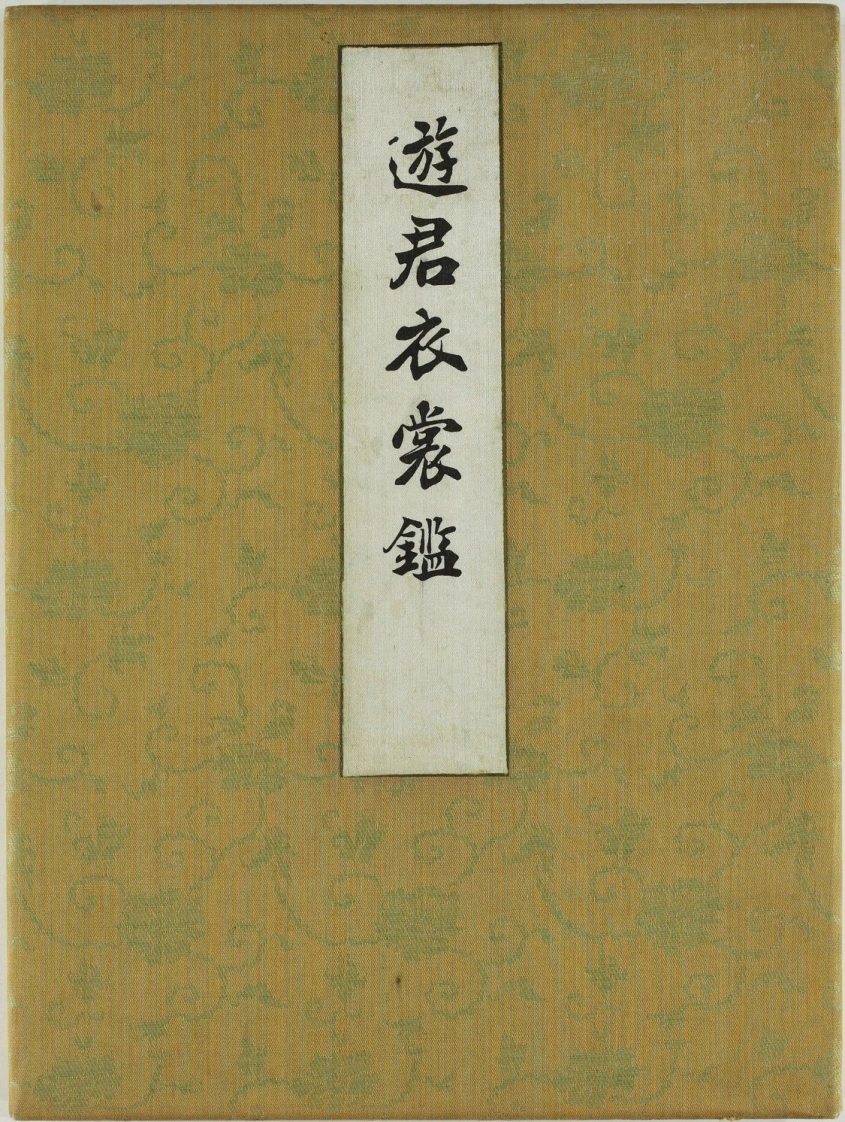 遊君衣裳鑑